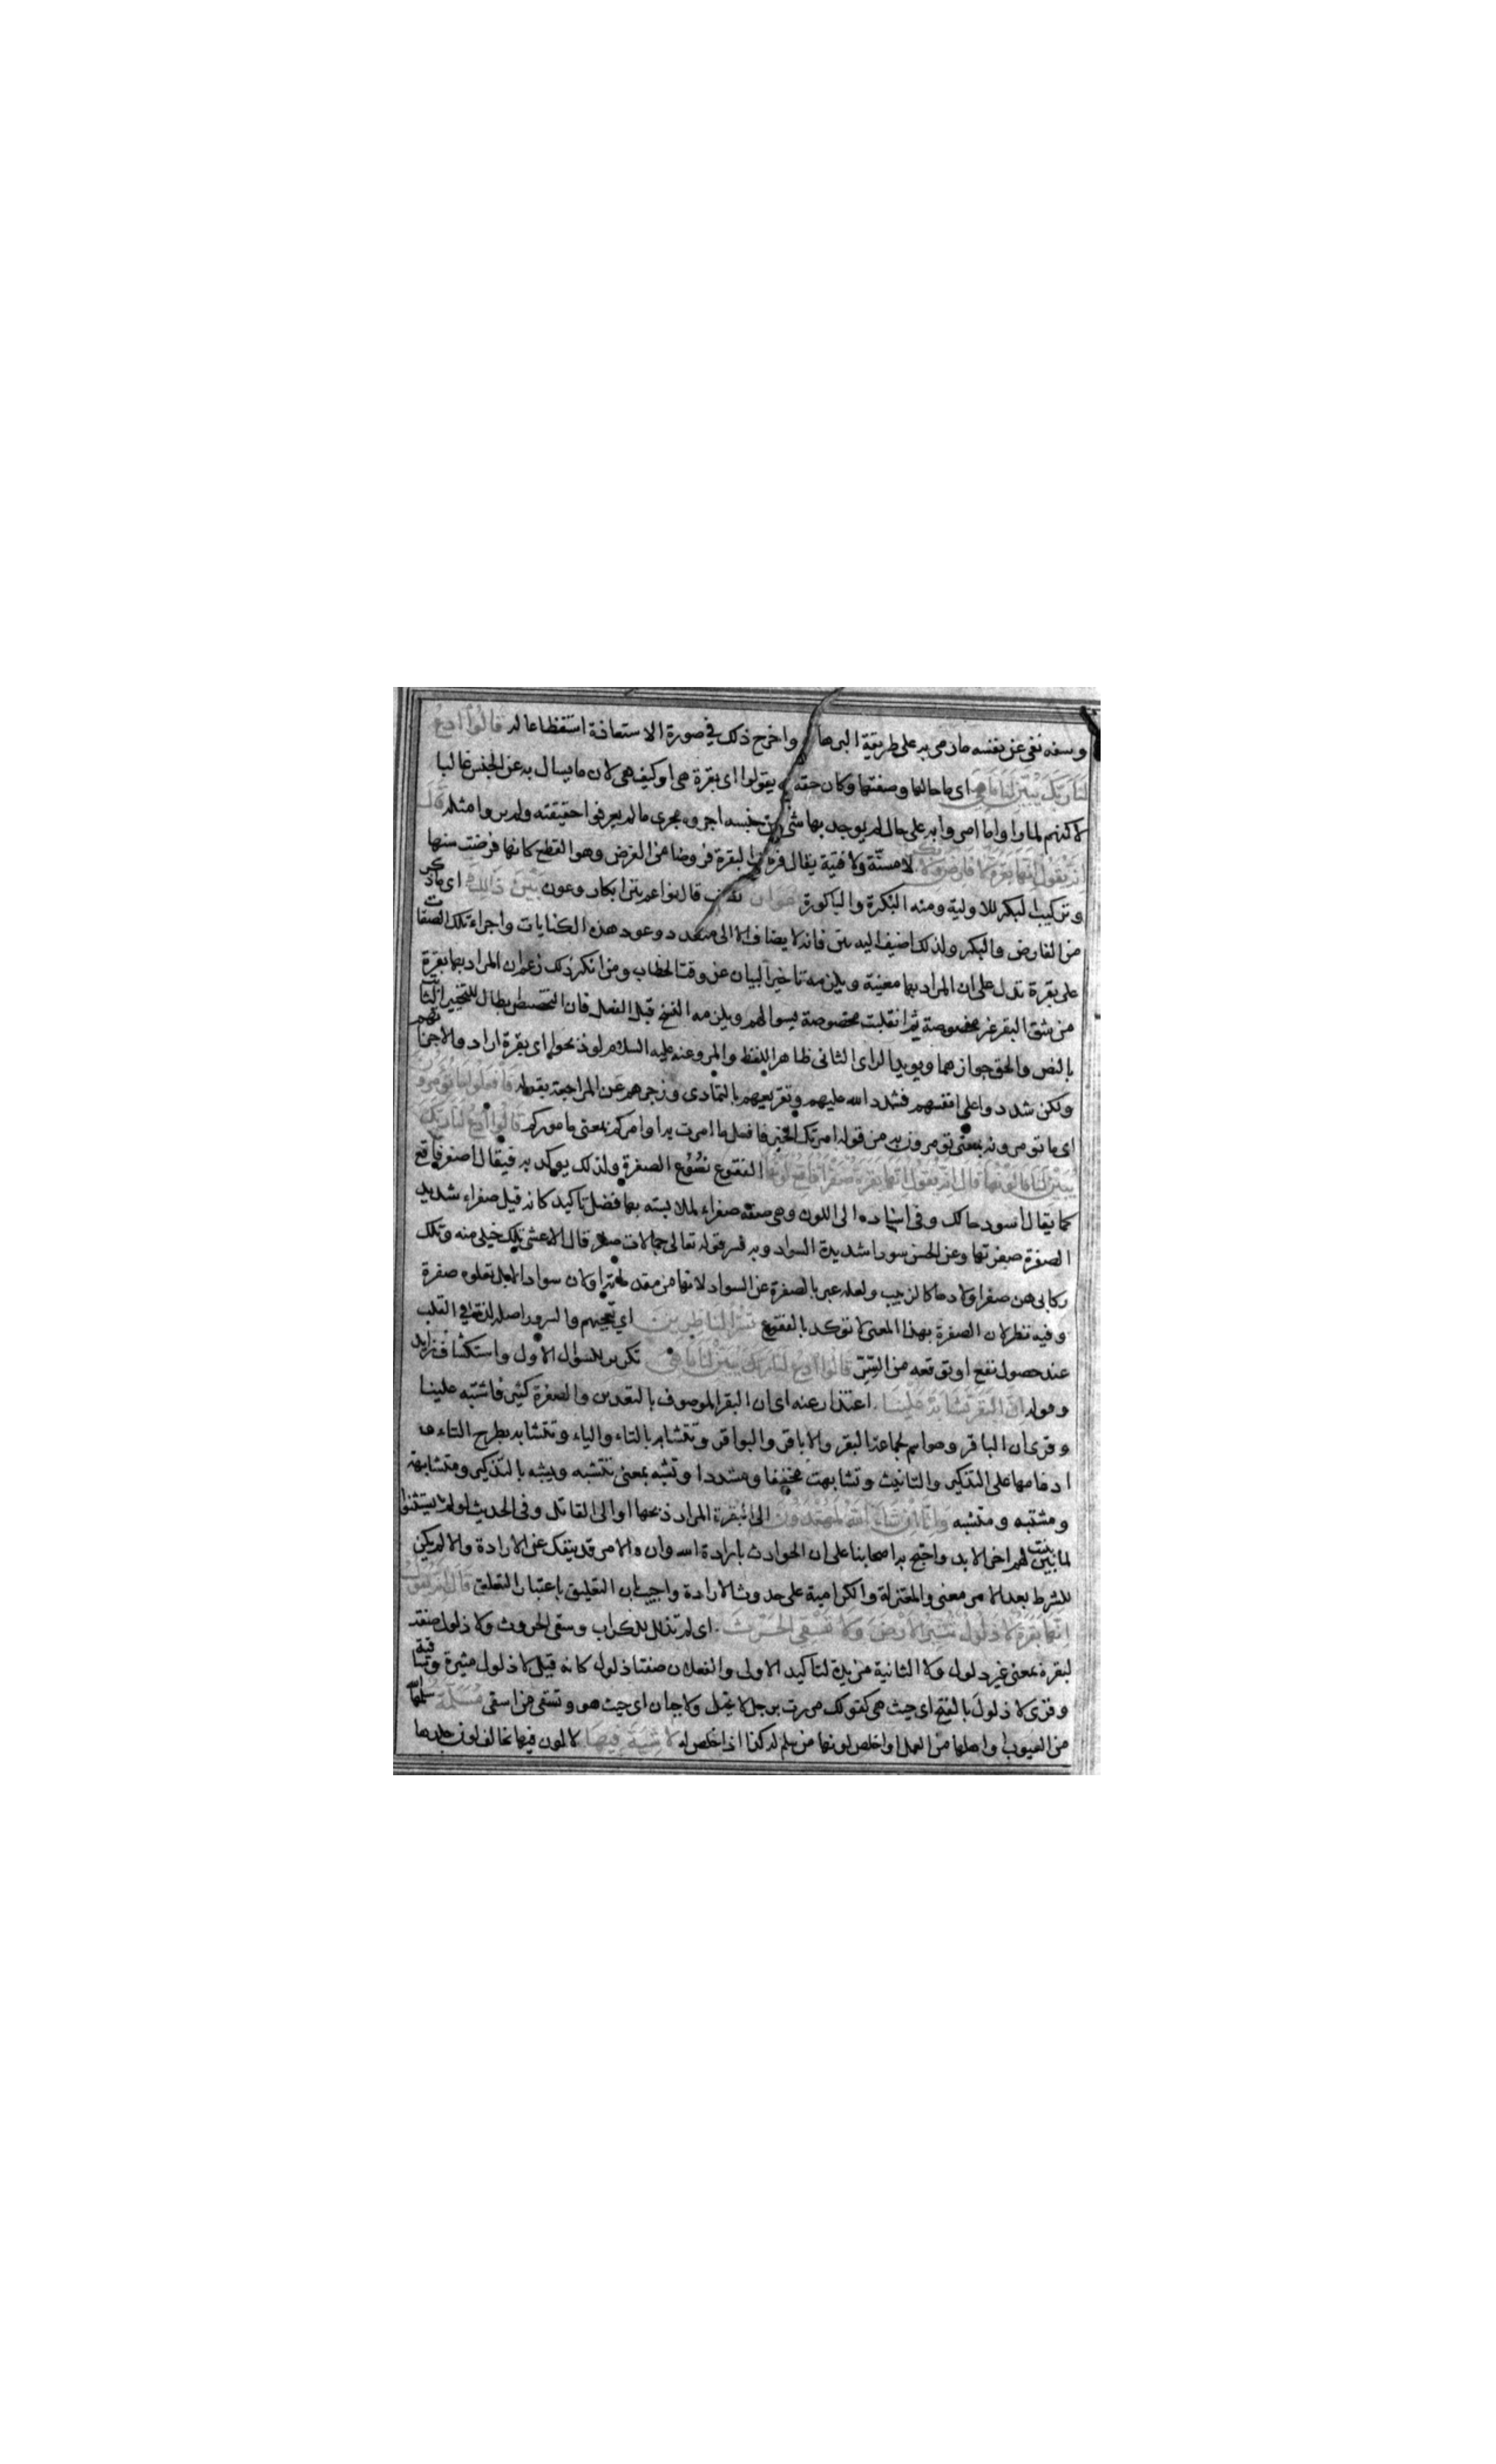 وسفه نفى عن نفسه ما رمى به على طريقة البرهان واخرج ذلك في صورة الاستعاذة استفظاعا له قالوا ادع
لنا ربك يبين لنا ما هي اى ما حالها وصفتها وكان حقه ان يقولوا اى بقرة هي او كيف هي لان ما يسال به عن الجنس غالبا
لاكنهم لما راوا ما امروا به على حال لم يوجد بها شي من جنسه اجروه مجرى ما لم يعرفوا حقيقته ولم يروا مثله قال
انه يقول انها بقرة لا فارض ولا بكر لا مسنة ولا فتية يقال فرضت البقرة فروضا من الفرض وهو القطع كانها فرضت سنها
وتركيب البكر للاولية ومنه البكرة والباكورة عوان نصف قال نواعم بين ابكار وعون بين ذلك اى ما ذكر
من الفارض والبكر ولذلك اضيف اليه بين فانه لا يضاف الا الى متعدد وعود هذه الكنايات واجراء تلك الصفات
على بقرة تدل على ان المراد بها معينة ويلزمه تاخير البيان عن وقت الخطاب ومن انكر ذلك زعم ان المراد بها بقرة
من شق البقر غير مخصوصة ثم انقلبت مخصوصة بسوالهم ويلزمه النسخ قبل الفعل فان التخصيص ابطال للتخيير الثابت
بالنص والحق جوازهما ويويد الراى الثانى ظاهر اللفظ والمروى عنه عليه السلام لو ذبحوا اى بقرة ارادوا لاجزاتهم
ولكن شددوا على انفسهم فشدد الله عليهم وتقريعهم بالتمادى وزجرهم عن المراجعة بقوله فافعلوا ما تومرون
اى ما تومرونه بمعنى تومرون به من قوله امرتك الخير فافعل ما امرت به او امركم بمعنى ماموركم قالوا ادع لنا ربك
يبين لنا ما لونها قال انه يقول انها بقرة صفراء فاقع لونها الفقوع نصوع الصفرة ولذلك يوكد به فيقال اصفر فاقع
كما يقال اسود حالك وفى اسناده الى اللون وهى صفة صفراء لملابسته بها فضل تاكيد كانه قيل صفراء شديد
الصفرة صفرتها وعن الحسن سودا شديدة السواد وبه فسر قوله تعالى جمالات صفر قال الاعشى تلك خيلى منه وتلك
ركابى هن صفر اولادها كالزبيب ولعله عبر بالصفرة عن السواد لانها من مقدماته او لان سواد الابل تعلوه صفرة
وفيه نظر لان الصفرة بهذا المعنى لا توكد بالفقوع تسر الناظرين اى تعجبهم والسرور اصله لذة في القلب
عند حصول نفع او توقعه من السر قالوا ادع لنا ربك يبين لنا ما هي تكرير للسؤال الاول واستكشاف زايد
وقوله ان البقر تشابه علينا اعتذار عنه اى ان البقر الموصوف بالتعوين والصفرة كثير فاشتبه علينا
وقرى ان الباقر وهو اسم لجماعة البقر والاباقر والبواقر وتتشابه بالتاء والياء وتشابه بطرح التاء و
ادغامها على التذكير والتانيث وتشابهت مخففا ومشددا وتشبه بمعنى تتشبه ويشبه بالتذكير ومتشابهة
ومشتبه ومتشبه وانا ان شاء الله لمهتدون الى البقرة المراد ذبحها او الى القاتل وفى الحديث لو لم يستثنوا
لما بينت لهم اخر الابد واحتج به اصحابنا على ان الحوادث بارادة الله وان الامر قد ينفك عن الارادة والا لم يكن
للشرط بعد الامر معنى والمعتزلة والكرامية على حدوث الارادة واجيب بان التعليق باعتبار التعلق قال انه يقول
انها بقرة لا ذلول تثير الارض ولا تسقي الحرث اى لم تذلل للكراب وسقى الحروث ولا ذلول صفة
لبقرة بمعنى غير ذلول ولا الثانية مزيدة لتاكيد الاولى والفعلان صفتا ذلول كانه قيل لا ذلول مثيرة وساقية
وقرى لا ذلول بالفتح اى حيث هى كقولك مررت برجل لا بخيل ولا جبان اى حيث هو وتسقى من اسقى مسلمة سلمها الله
من العيوب او اهلها من العمل او اخلص لونها من سلم له كذا اذا خلص له لا شية فيها لا لون فيها يخالف لون جلدها